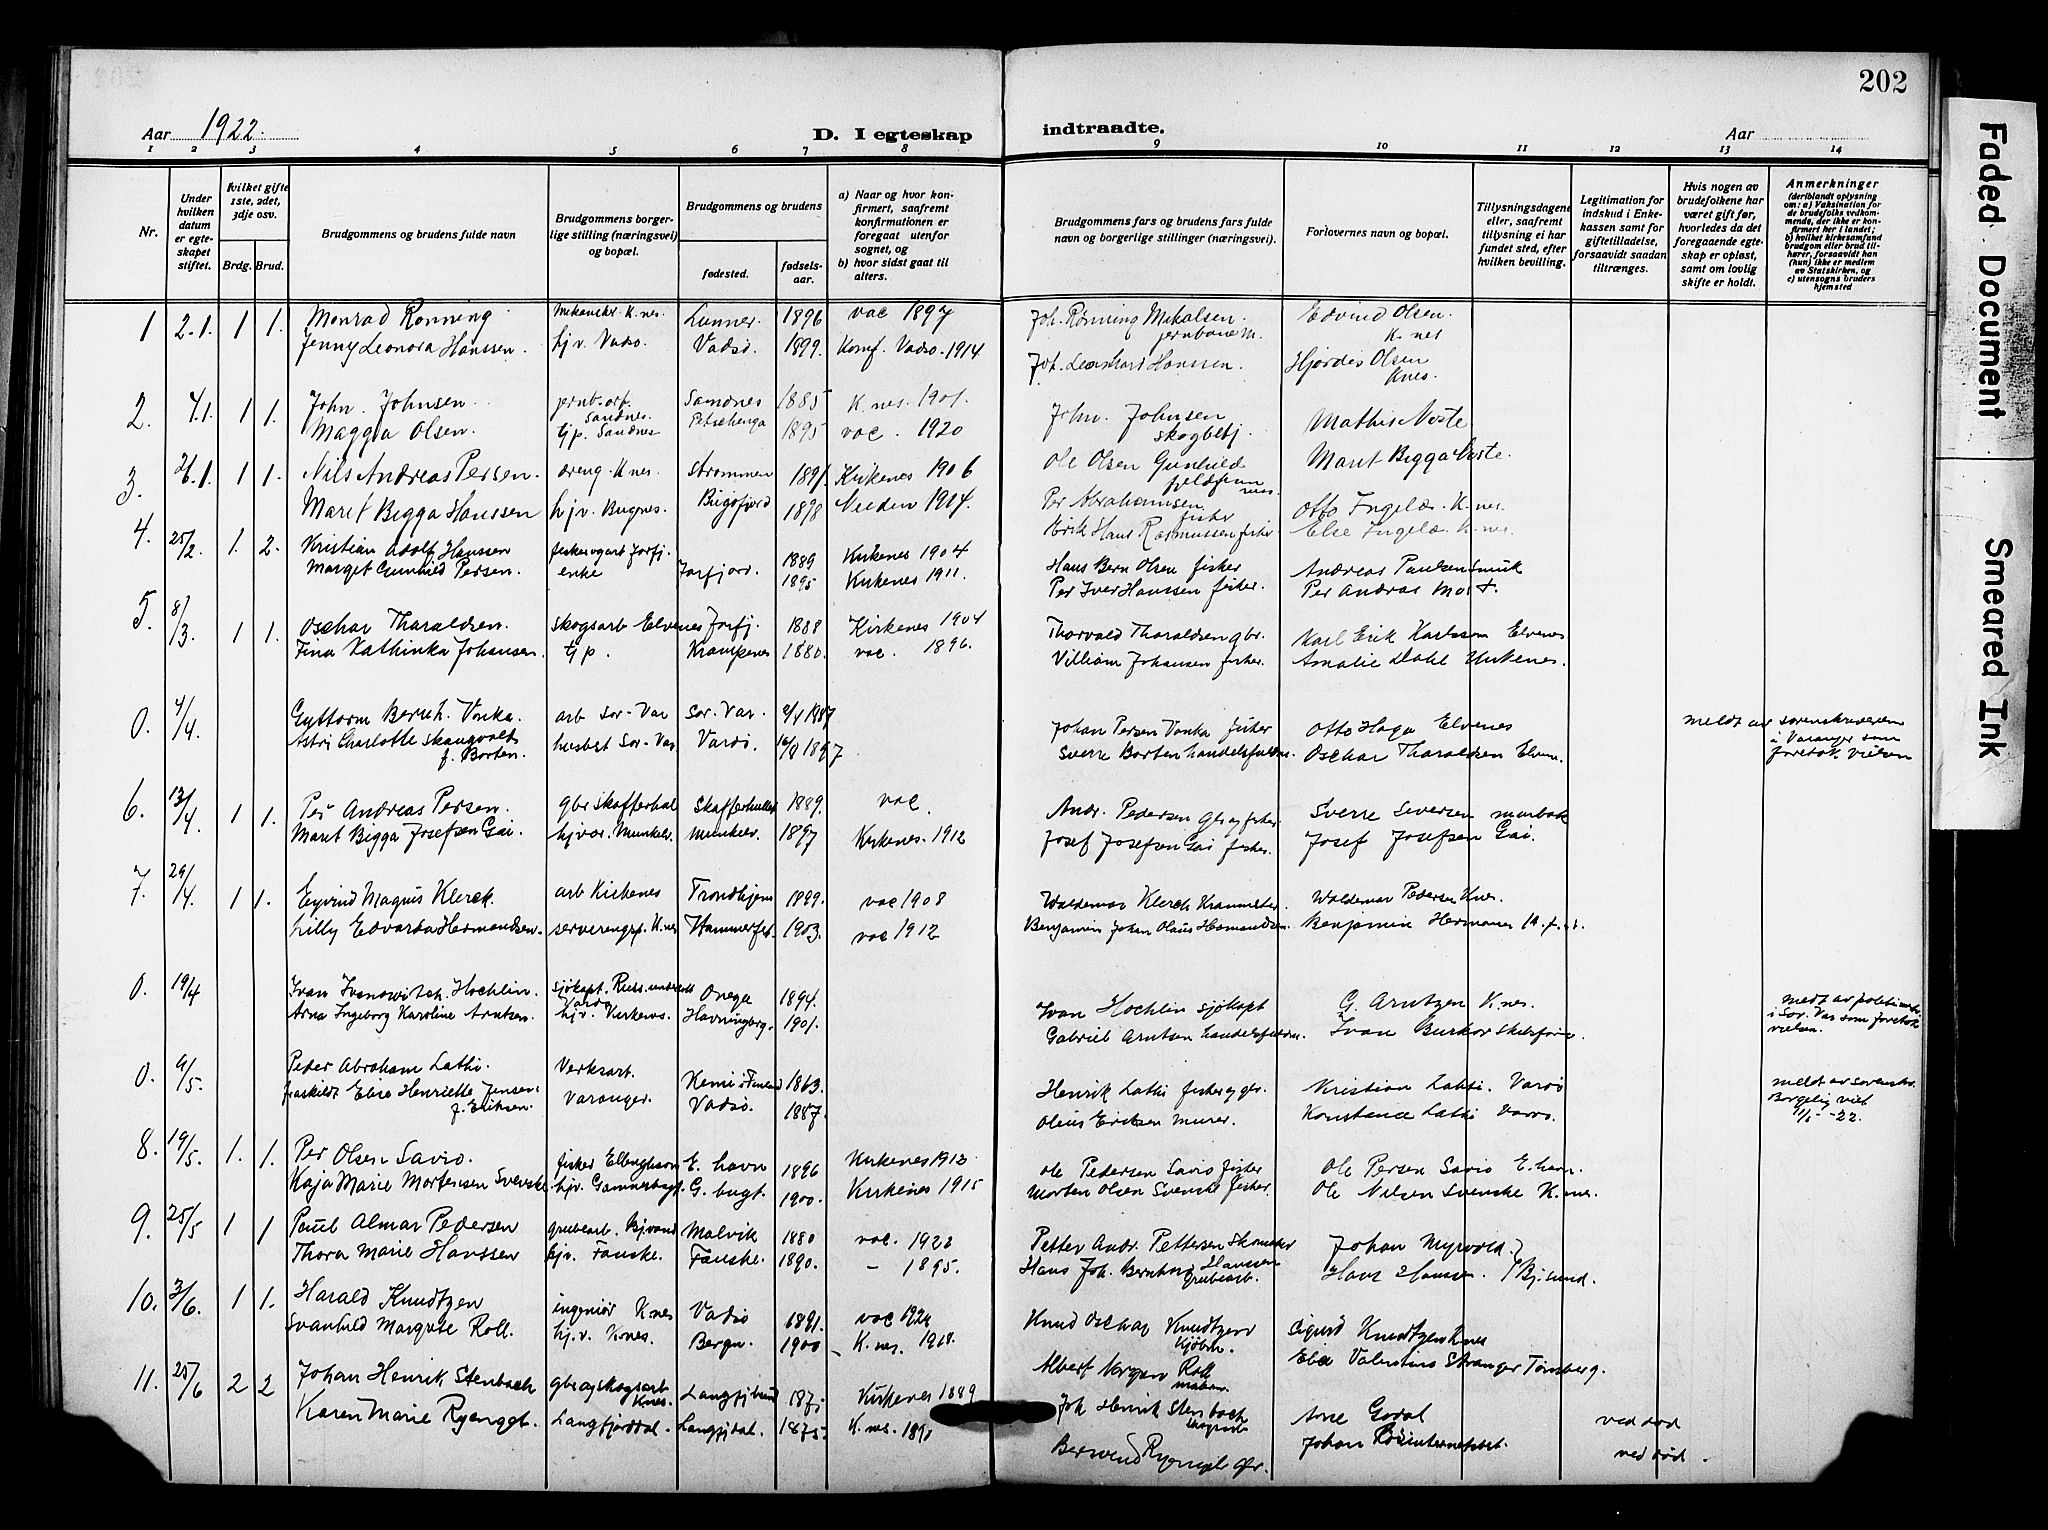 202
Aar 1922.
D. I egteskap indtraadte.
Aar
1 2 3 4 5 6 7 8 9 10 11 12 13 14
Nr.
Under hvilken datum er egteskapet stiftet.
Hvilket gifte 1ste, 2det, 3dje osv.
Brdg. Brud.
Brudgommens og brudens fulde navn
Brudgommens borgerlige stilling (næringsvei) og bopæl.
Brudgommens og brudens
fødested.
fødselsaar.
a) Naar og hvor konfirmert, saafremt konfirmationen er foregaat utenfor sognet, og
b) hvor sidst gaat til alters.
Brudgommens fars og brudens fars fulde navn og borgerlige stillinger (næringsvei).
Forlovernes navn og bopæl.
Tillysningsdagene eller, saafremt tillysning ei har fundet sted, efter hvilken bevilling.
Legitimation for indskud i Enkekassen samt for giftetilladelse, forsaavidt saadan tiltrænges.
Hvis nogen av brudefolkene har været gift før, hvorledes da det foregaaende egteskap er opløst, samt om lovlig skifte er holdt.
Anmerkninger
(deriblandt oplysning om: a) Vaksination for de brudefolks vedkommende, der ikke er konfirmert her i landet; b) hvilket kirkesamfund brudgom eller brud tilhører, forsaavidt han (hun) ikke er medlem av Statskirken, og c) utensogns bruders hjemsted
1 2.1. 1 1. Monrad Rønning K.nes. Lunner. 1896 vac 1897 Joh. Rønning Mikalsen. Edvind Olsen. K.nes
Jenny Leonora Hanssen. hjv. Vadsø. Vadsø. 1899. Konf. Vadsø. 1914 Joh. Leonhard Hanssen. Hjørdis Olsen Knes.
2. 4.1. 1 1. John. Johnsen. Sandnes. Sandnes 1885 K.nes. 1901. John. Johnsen skogbetj. Mathis Neste
Magga Olsen. Sandnes Petschenga 1895 vac. 1920 Ole Olsen Gunhild Marit Bigga Neste
3. 26.1. 1 1. Nils Andreas Persen. dreng. K.nes. Strømmen 1891. Kirkenes 1906 Per Abrahamsen fisker Otto Ingelæ. K.nes.
Marit Bigga Hanssen hjv. Bugnes. Bugøfjord 1898 Neiden 1914. Erik Hans Rasmussen fisker Else Ingelæ K.nes.
4. 25/2. 1. 2. Kristian Adolf Hanssen Jarfj. Jarfjor. 1889 Kirkenes 1904 Hans Bern Olsen fisker Andreas Paulsen
Marget Gunhild Persen. enke 1895 Kirkenes 1911. Per Iver Hanssen fisker. Per Andras
5. 8/3. 1 1. Oschar Tharaldsen. skogsarb Elvenes Jarfj. 1888 Kirkenes 1904 Thorvald Tharaldsen gbr. Karl Erik Karlsson Elvenes
Fina Kathinka Johansen. tjp. Krampenes 1880. vac. 1896. Villiam Johansen fisker. Amalie Dahl Kirkenes.
0. 4/4. Guttorm Bernh. Vonka. arb Sør-Var Sør-Var. 1887 Johan Persen Vonka fisker Otto Haga Elvenes meldt av sorenskriveren i Varanger som foretok vielsen
Astri Charlotte f. Borten. Sør-Var Vardø. 1897 Sverre Borten Oschar Tharaldsen
6. 13/4. 1 1. Per Andreas Persen. gbr 1889. vac. Andr. Pedersen gbr og fisker Sverre Seversen
Marit Bigga Josefsen Gai. Munkelv. 1897 Kirkenes. 1912 Josef Josefsen Gai fisker. Josef Josefsen Gai.
7. 29/4. 1 1. Eyvind Magnus Klerck. arb Kirkenes Trondhjem 1899. vac 1908 Waldemar Klerck Waldemar Pedersen Knes.
Lilly Edvarda Hermandsen. K.nes Hammerfest. 1903. vac 1912 Benjamin Johan Olaus Hermandsen. Benjamin
0. 19/4 Ivan Ivanowitch. Hochlin. sjøkapt. Onega 1894. Ivan Hochlin sjøkapt G. Arntzen K.nes. meldt av i Sør. Var som foretok vielsen.
Arna Ingeborg Karoline Arntsen. hjv. Kirkenes. Havningberg. 1901. Gabriel Arntsen Ivan
0. 9/5. Peder Abraham Lathi. Verksarb. Kemi i Finland 1863. Henrik Lathi fisker og gbr. Kristian Lathi. Vardø meldt av Borgelig viet 1/5 -22.
Elise Henriette Jensen. f. Eriksen. Varanger. Vadsø. 1887. Oleus Eriksen murer. Konstance Lathi Vardø.
8. 19/5. 1. 1. Per Olsen Savio. fisker E. havn 1896 Kirkenes 1913. Ole Pedersen Savio fisker Ole Persen Savio E.havn.
Kaja Marie Mortensen Svenske. hjv. G. bugt. 1900. Kirkenes 1915 Morten Olsen Svenske fisker. Ole Nilsen Svenske K.nes.
9. 25/5 1 1 Paul Almar Pedersen grubearb. Malvik 1880 vac. Petter Andr. Pettersen Johan Myrvold.
Thora Marie Hanssen hjv. Fauske. Fauske. 1890. - 1895. Hans Joh. Bernhard Hanssen grubearb. Hans Hansen.
10. 3/6. 1 1. Harald Knudtzen ingeniør K.nes Vadsø 1891. vac Knud Oschar Knudtzen Sigurd Knudtzen Knes
Svanhild Margrete Roll. hjv. K.nes. Bergen. 1900 K.nes. Albert Roll Tønsberg.
11. 25/6 2 2 Johan Henrik Stenbach Knes. Kirkenes 1889 Joh. Henrik Stenbach Arne Godal ved død
Karen Marie Langfjorddal. Langfjdal. 1875. K.nes. gbr. Johan ved død.
Faded Document
Smeared Ink